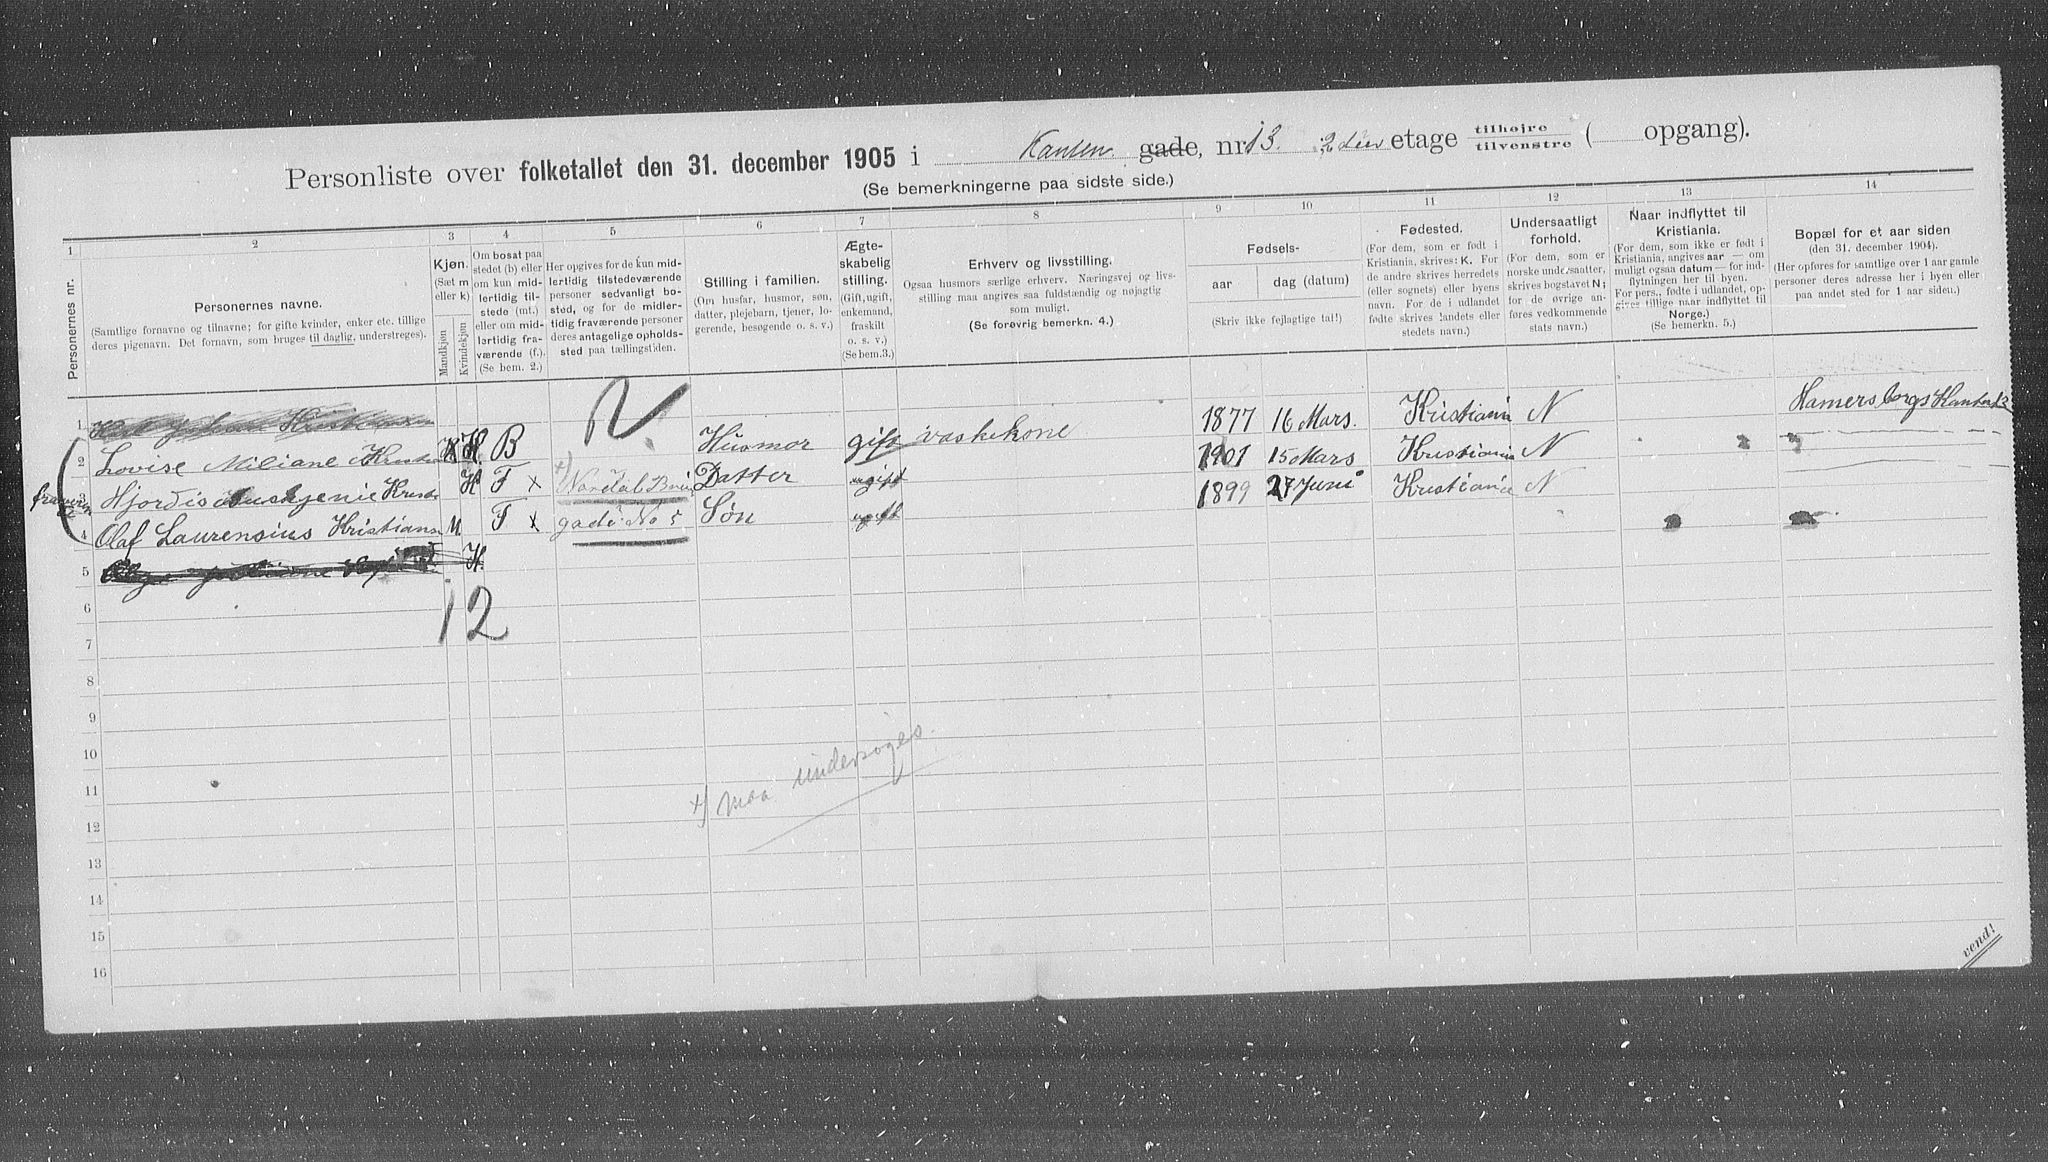 Personliste over folketallet den 31. december 1905 i Kanten gade, nr. 13. 2den etage tilhøjre tilvenstre ( opgang).
(Se bemerkningerne paa sidste side.)
1 2 3 4 5 6 7 8 9 10 11 12 13 14
Personernes nr.
Personernes navne.
(Samtlige fornavne og tilnavne; for gifte kvinder, enker etc. tillige
deres pigenavn. Det fornavn, som bruges til daglig, understreges).
Kjøn.
(Sæt m
eller k)
Mandkjøn
Kvindekjøn
Om bosat paa
stedet (b) eller
om kun mid-
lertidig til-
stede (mt.)
eller om mid-
lertidig fra-
værende (f.).
(Se bem. 2.)
Her opgives for de kun mid-
lertidig tilstedeværende
personer sedvanligt bo-
sted, og for de midler-
tidig fraværende personer
deres antagelige opholds-
sted paa tællingstiden.
Stilling i familien.
(Om husfar, husmor, søn,
datter, plejebarn, tjener, lo-
gerende, besøgende o. s. v.)
Ægte-
skabelig
stilling.
(Gift, ugift,
enkemand,
fraskilt
o. s. v.)
(Se bem.3.)
Erhverv og livsstilling.
Ogsaa husmors særlige erhverv. Næringsvej og livs-
stilling maa angives saa fuldstændig og nøjagtig
som muligt.
(Se forøvrig bemerkn. 4.)
Fødsels-
aar dag (datum)
(Skriv ikke fejlagtige tal!)
Fødested.
(For dem, som er født i
Kristiania, skrives: K. For
de andre skrives herredets
(eller sognets) eller byens
navn. For de i udlandet
fødte skrives landets eller
stedets navn.)
Undersaatligt
forhold.
(For dem, som er
norske undersaatter,
skrives bogstavet N;
for de øvrige an-
føres vedkommende
stats navn.)
Naar indflyttet til
Kristiania.
(For dem, som ikke er født i
Kristiania, angives aar — om
muligt ogsaa datum — for ind-
flytningen her til byen.
For pers., fødte i udlandet, op-
gives tillige naar indflyttet til
Norge.)
(Se bemerkn. 5.)
Bopæl for et aar siden
(den 31. december 1904).
(Her opføres for samtlige over 1 aar gamle
personer deres adresse her i byen eller
paa andet sted for 1 aar siden.)
1
2 Lovise Miliane Kristia K H. B Husmor gift vaskekone 1877 16 Mars. Kristiania N Hamersborgs Kanten
3 Hjordis Kristi H F x x) Nordal Brun Datter ugift 1901 15 Mars Kristiania N
4 Olaf Laurensius Kristians M F x gade No 5 Søn ugift 1899 27 Juni Kristiania N
5 H.
12
6
7
8
9
10
11
12
13
14
15
16
x) maa undersøges.
vend!